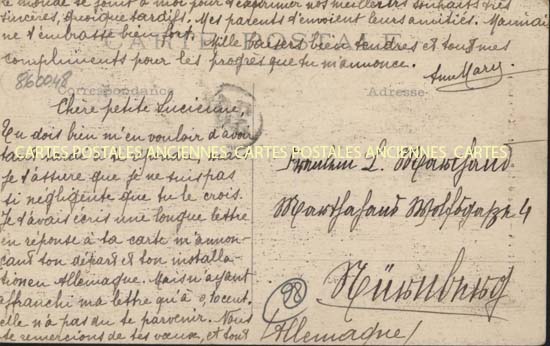 le monde se joint à moi pour t'exprimer nos meilleurs souhaits très
sincères, quoique tardifs. Mes parents t'envoient leurs amitiés. Maman
ne t'embrasse bien fort. Mille baisers bien tendres et tous mes
compliments pour les progrès que tu m'annonce.
Ann Mary.
CARTE POSTALE
860048
Correspondance
Adresse
Chère petite Lucienne,
Tu dois bien m'en vouloir d'avoir
CARTES POSTALES ANCIENNES CARTES POSTALES ANCIENNES CARTES POSTALES ANCIENNES
Je t'assure que je ne suis pas
si négligente que tu le crois.
Je t'avais écris une longue lettre
en réponse à ta carte m'annon-
çant ton départ et ton installa-
tion en Allemagne. Mais n'ayant
affranchi ma lettre qu'à 0,10 cent.
elle n'a pas du te parvenir. Nous
te remercions de tes vœux, et tout
Fräulein L. Marchand
Marthahaus Wolfsgasse 4
Nürnberg
(Allemagne)
98